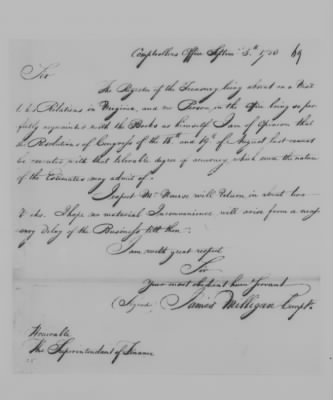 Comptrollers Office Septr 5th 1783 69
Sir
The Register of the Treasury being about on a Visit
to his Relations in Virginia, and no Person in the Office being so per-
fectly acquainted with the Books as himself I am of Opinion that
the Resolutions of Congress of the 18th and 19th of August last cannot
be executed with that tolerable degree of accuracy which even the nature
of the Estimates may admit of.
I expect Mr Nourse will return in about two
I hope no material Inconvenience will arise from a neces-
sary delay of the Business till then
I am with great respect
Sir
Your most obedient hum Servant
(Signed) James Milligan Compt.
Honorable
The Superintendant of Finance